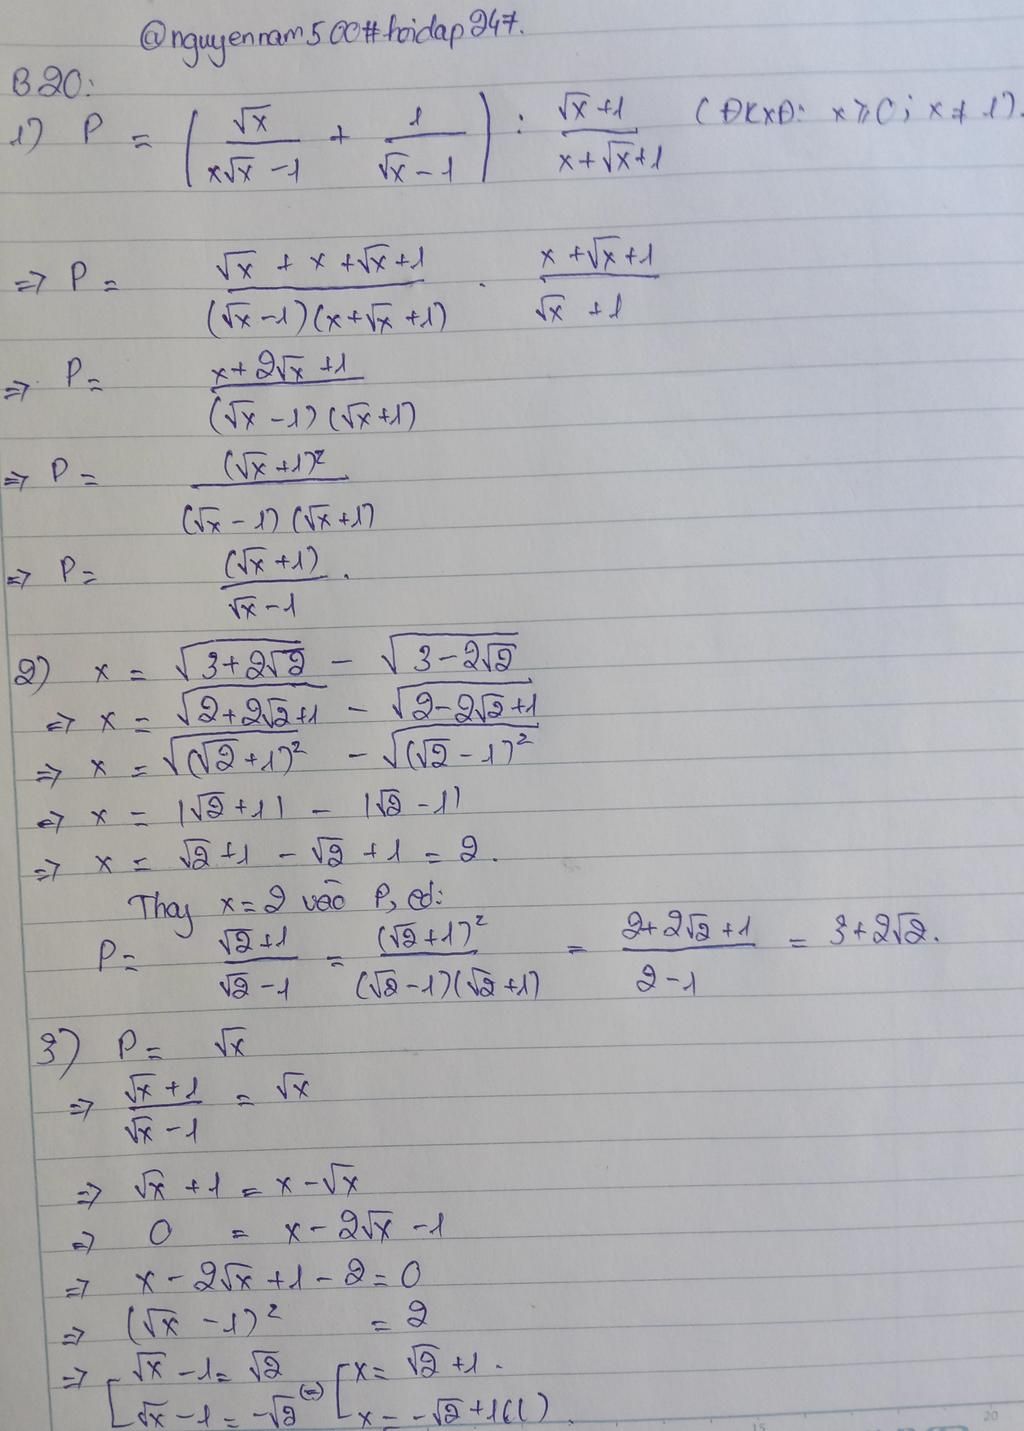 @nguyennam500#hoidap247.
B20:
1) P = (√x/(x√x - 1) + 1/(√x - 1)) : (√x + 1)/(x + √x + 1) (ĐKXĐ: x ≥ 0; x ≠ 1).
=> P = (√x + x + √x + 1)/((√x - 1)(x + √x + 1)) . (x + √x + 1)/(√x + 1)
=> P = (x + 2√x + 1)/((√x - 1)(√x + 1))
=> P = (√x + 1)²/((√x - 1)(√x + 1))
=> P = (√x + 1)/(√x - 1).
2) x = √(3 + 2√2) - √(3 - 2√2)
=> x = √(2 + 2√2 + 1) - √(2 - 2√2 + 1)
=> x = √((√2 + 1)²) - √((√2 - 1)²)
=> x = |√2 + 1| - |√2 - 1|
=> x = √2 + 1 - √2 + 1 = 2.
Thay x = 2 vào P, có:
P = (√2 + 1)/(√2 - 1) = (√2 + 1)²/((√2 - 1)(√2 + 1)) = (2 + 2√2 + 1)/(2 - 1) = 3 + 2√2.
3) P = √x
=> (√x + 1)/(√x - 1) = √x
=> √x + 1 = x - √x
=> 0 = x - 2√x - 1
=> x - 2√x + 1 - 2 = 0
=> (√x - 1)² = 2
=> [ √x - 1 = √2 (=) [ x = √2 + 1.
√x - 1 = -√2 x = -√2 + 1 (l).
15 20